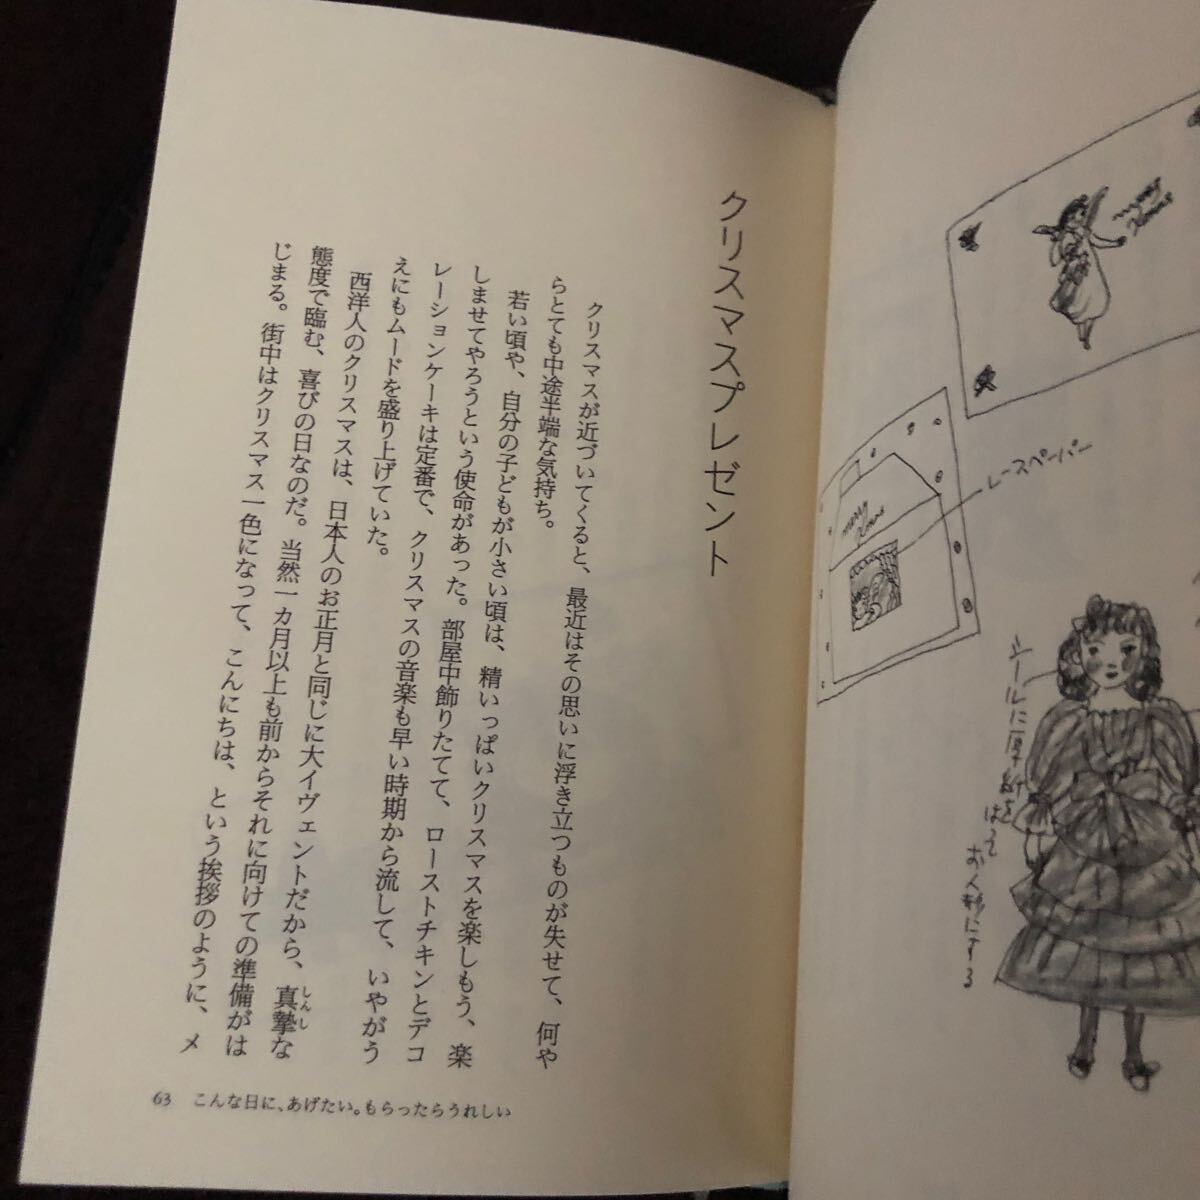 クリスマスプレゼント
クリスマスが近づいてくると、最近はその思いに浮き立つものが失せて、何や
らとても中途半端な気持ち。
若い頃や、自分の子どもが小さい頃は、精いっぱいクリスマスを楽しもう、楽
しませてやろうという使命があった。部屋中飾りたてて、ローストチキンとデコ
レーションケーキは定番で、クリスマスの音楽も早い時期から流して、いやがう
えにもムードを盛り上げていた。
西洋人のクリスマスは、日本人のお正月と同じに大イヴェントだから、真摯な
しんし
態度で臨む、喜びの日なのだ。当然一カ月以上も前からそれに向けての準備がは
じまる。街中はクリスマス一色になって、こんにちは、という挨拶のように、メ
63 こんな日に、あげたい。もらったらうれしい
merry
Xmas
レースペーパー
merry
Xmas
シールに厚紙を
はって
お人形にする